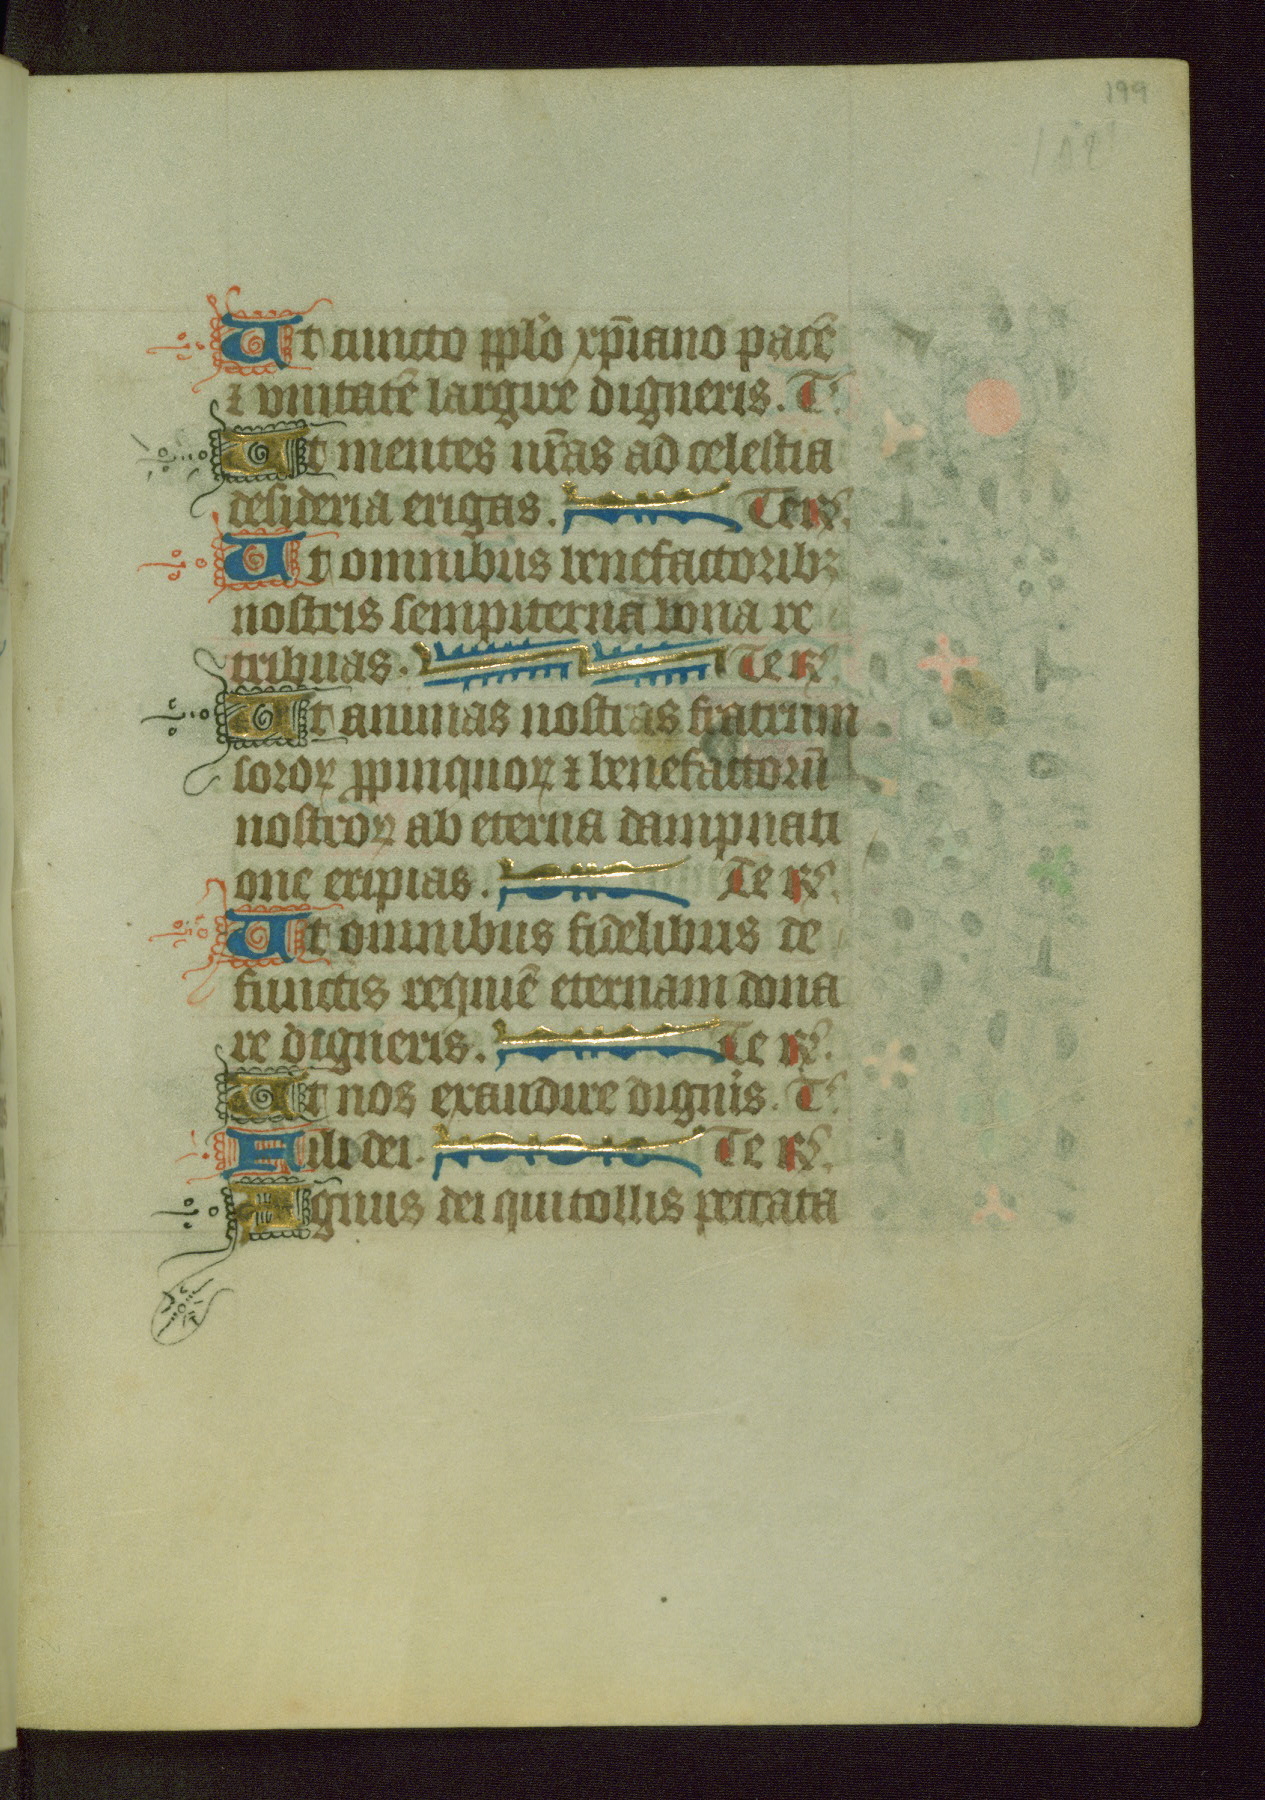 199
Ut cuncto pplo xp̄iano pacē
⁊ vnitatē largire digneris. T
Ut mentes nr̄as ad celestia
desideria erigas. Te rꝰ.
Ut omnibus benefactoribꝫ
nostris sempiterna bona re
tribuas. Te r.
Ut animas nostras fratrum
soroꝝ ꝓpinquoꝝ ⁊ benefactorū
nostroꝝ ab eterna dampnati
one eripias. Te r.
Ut omnibus fidelibus de
functis requiē eternam dona
re digneris. Te r.
Ut nos exaudire dignis. T
Fili dei. Te r.
Agnus dei qui tollis peccata